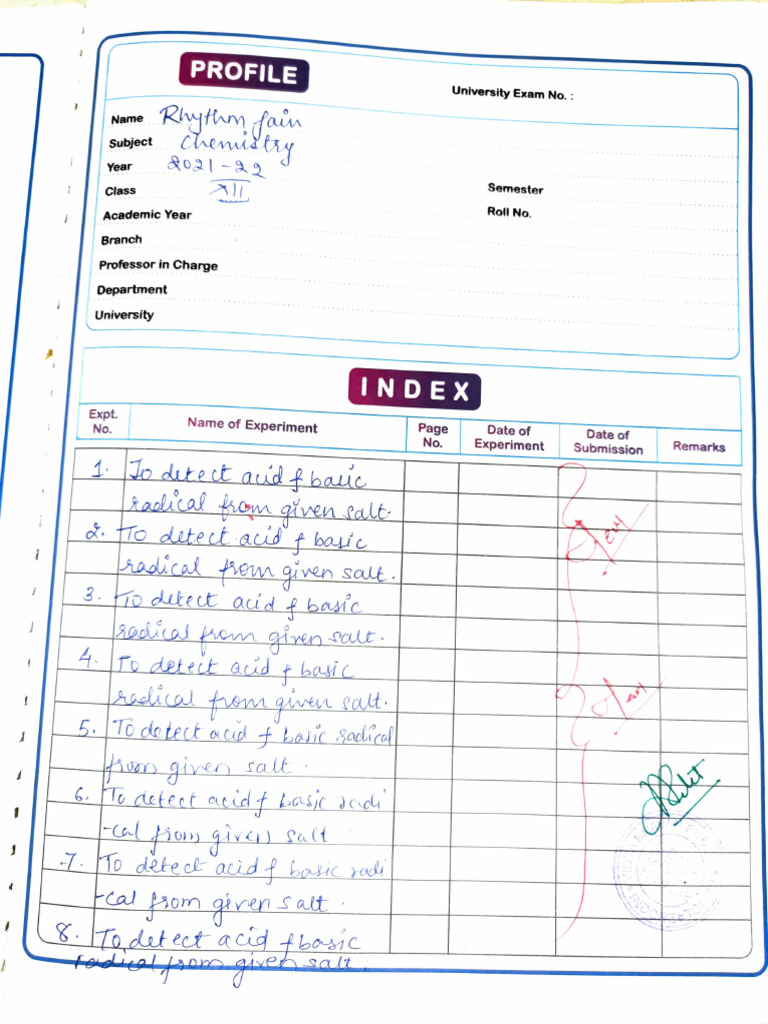 PROFILE
University Exam No. :
Name Rhythm Jain
Subject Chemistry
Year 2021-22
Class XII
Semester
Academic Year
Roll No.
Branch
Professor in Charge
Department
University
INDEX
Expt. No. Name of Experiment Page No. Date of Experiment Date of Submission Remarks
1. To detect acid & basic
radical from given salt.
2. To detect acid & basic
radical from given salt.
3. To detect acid & basic
radical from given salt.
4. To detect acid & basic
radical from given salt.
5. To detect acid & basic radical
from given salt.
6. To detect acid & basic radi
-cal from given salt
7. To detect acid & basic radi
-cal from given salt.
8. To detect acid & basic
radical from given salt.